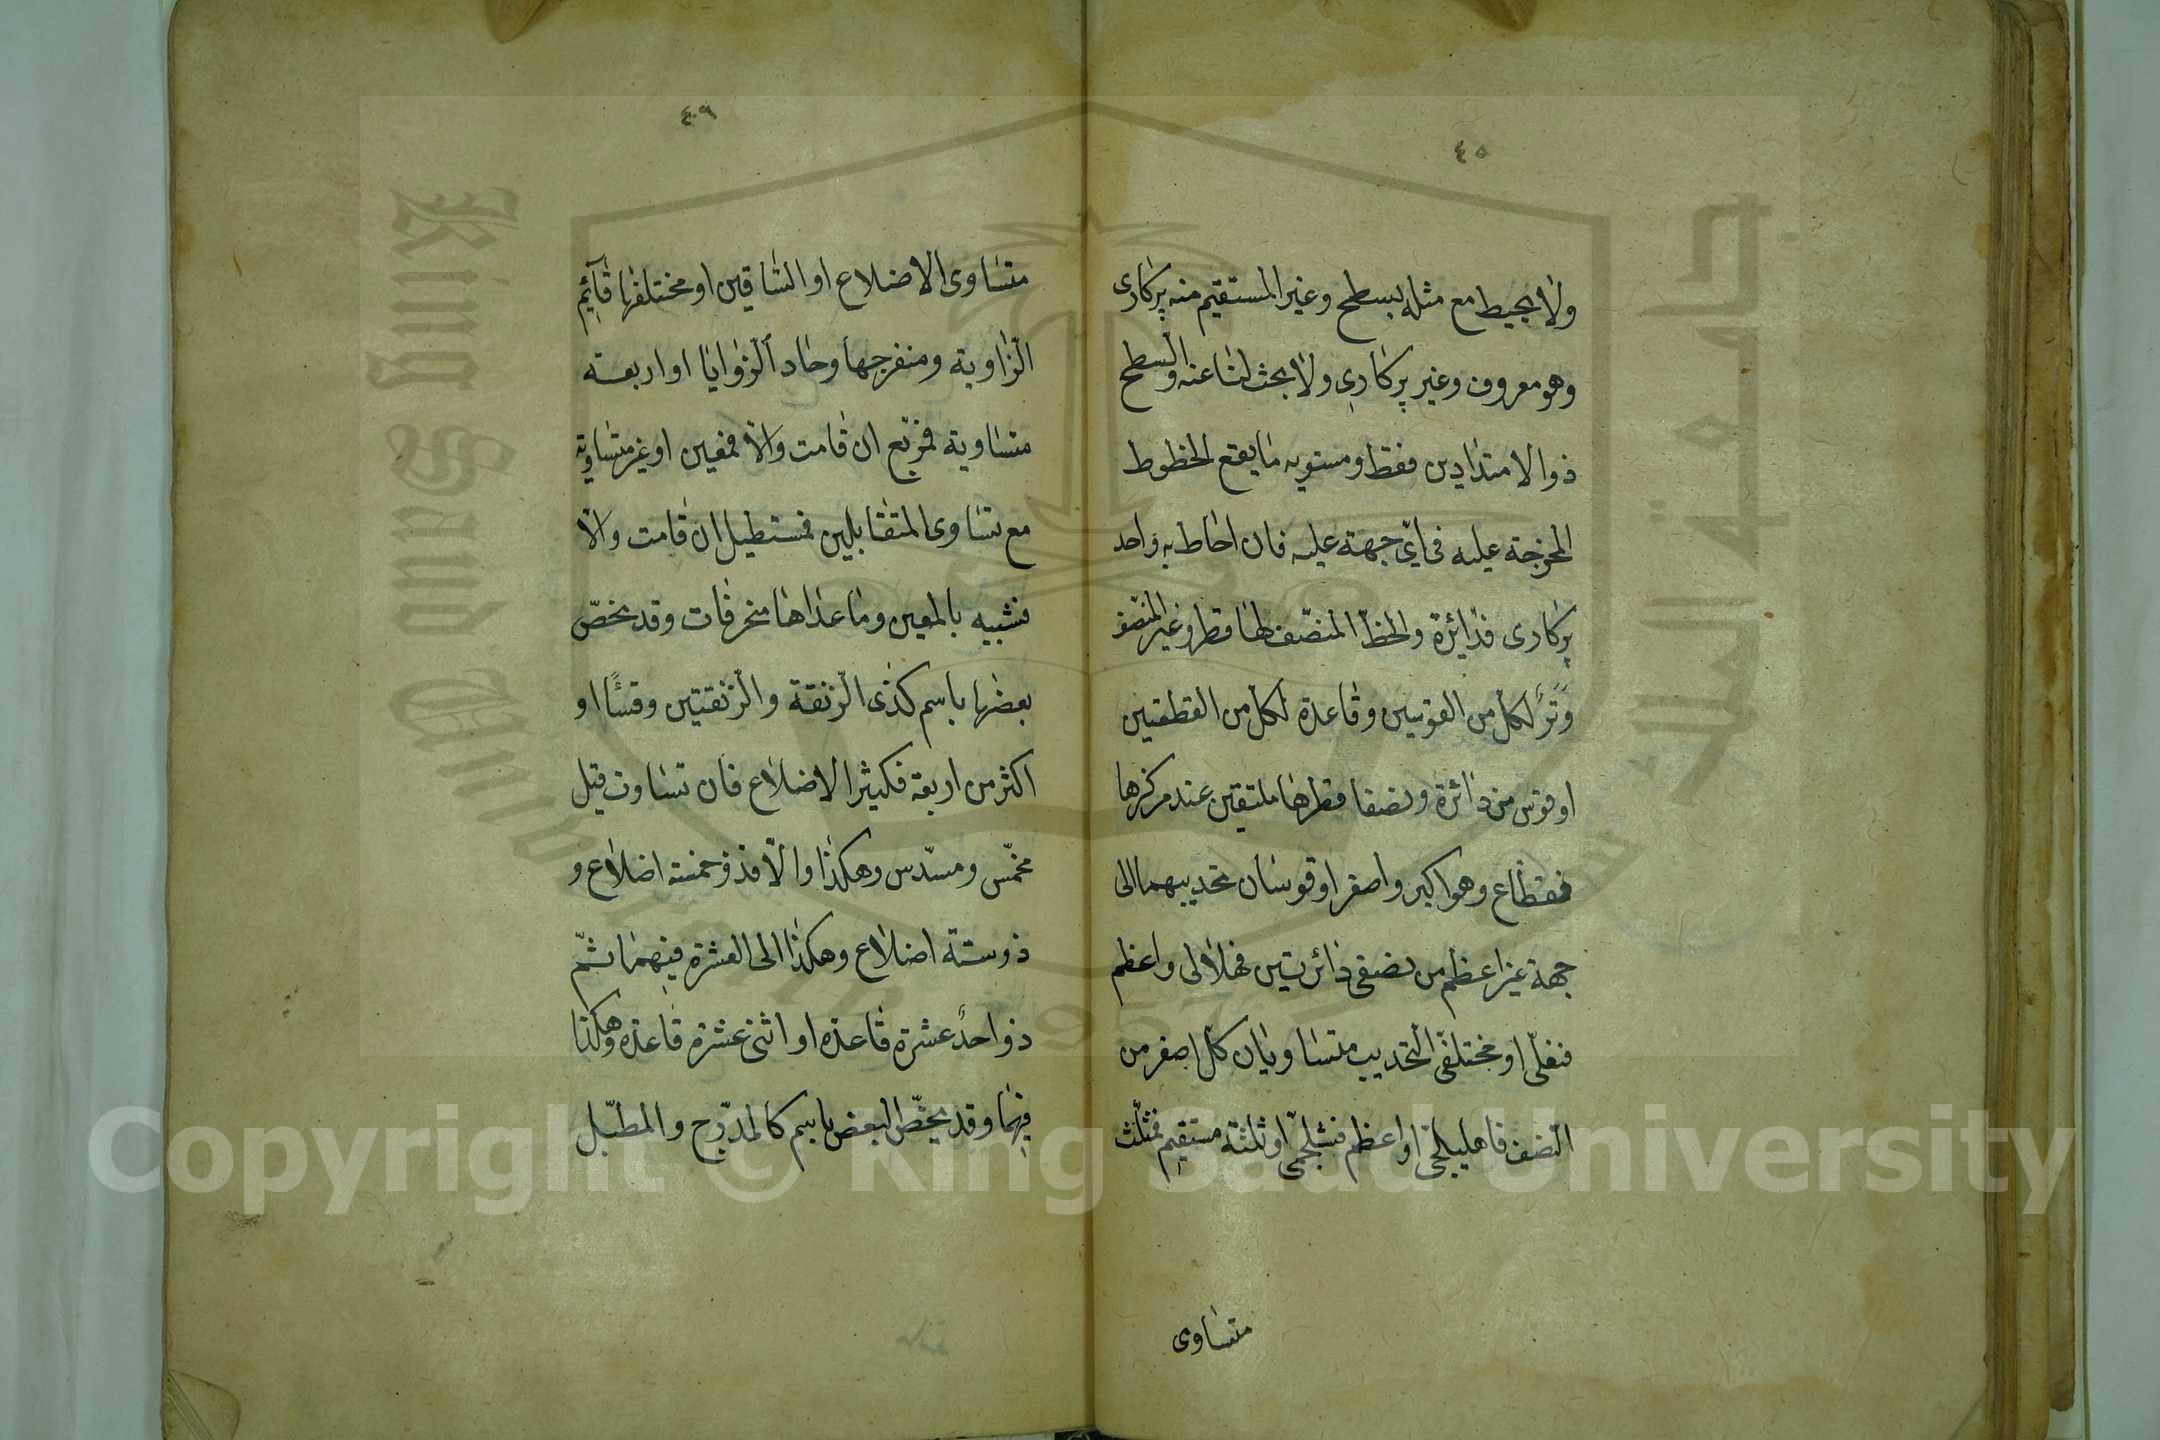 ٤٥
ولا يحيط مع مثله بسطح وغير المستقيم منه پركارى
وهو معروف وغير پركارى ولا بحث لنا عنه والسطح
ذو الامتدادين فقط ومستويه ما يقع الخطوط
المخرجة عليه فى اىّ جهة عليه فان احاط به واحد
پركارى فدائرة والخطّ المنصّف لها قطر وغير المنصّف
وترٌ لكل من القوسين وقاعدة لكل من القطعتين
او قوس من دائرة ونصفا قطرها ملتقين عند مركزها
فقطاع وهو اكبر واصغر او قوسان تحديبهما الى
جهة غير اعظم من نصفى دائرتين فهلالى واعظم
فنعلى او مختلفى التحديب متساويان كل اصغر من
النصف فاهليلجى او اعظم فشلجمى او ثلثة مستقيم فمثلّث
متساوى
٤٦
متساوى الاضلاع او الساقين او مختلفها قائم
الزاوية ومنفرجها وحاد الزوايا او اربعة
متساوية فمربّع ان قامت والّا فمعين او غير متساوية
مع تساوى المتقابلين فمستطيل ان قامت والّا
فشبيه بالمعين وما عداها منحرفات وقد يخصّ
بعضها باسم كذى الزنقة والزنقتين وقثّا او
اكثر من اربعة فكثير الاضلاع فان تساوت قيل
مخمّس ومسدّس وهكذا والّا فذو خمسة اضلاع و
ذو ستة اضلاع وهكذا الى العشرة فيهما ثمّ
ذو احد عشرة قاعدة او اثنى عشرة قاعدة وهكذا
فيهما وقد يخصّ البعض باسم كالمدرّج والمطبّل
Copyright © King Saud University
King Saud University
جامعة الملك سعود